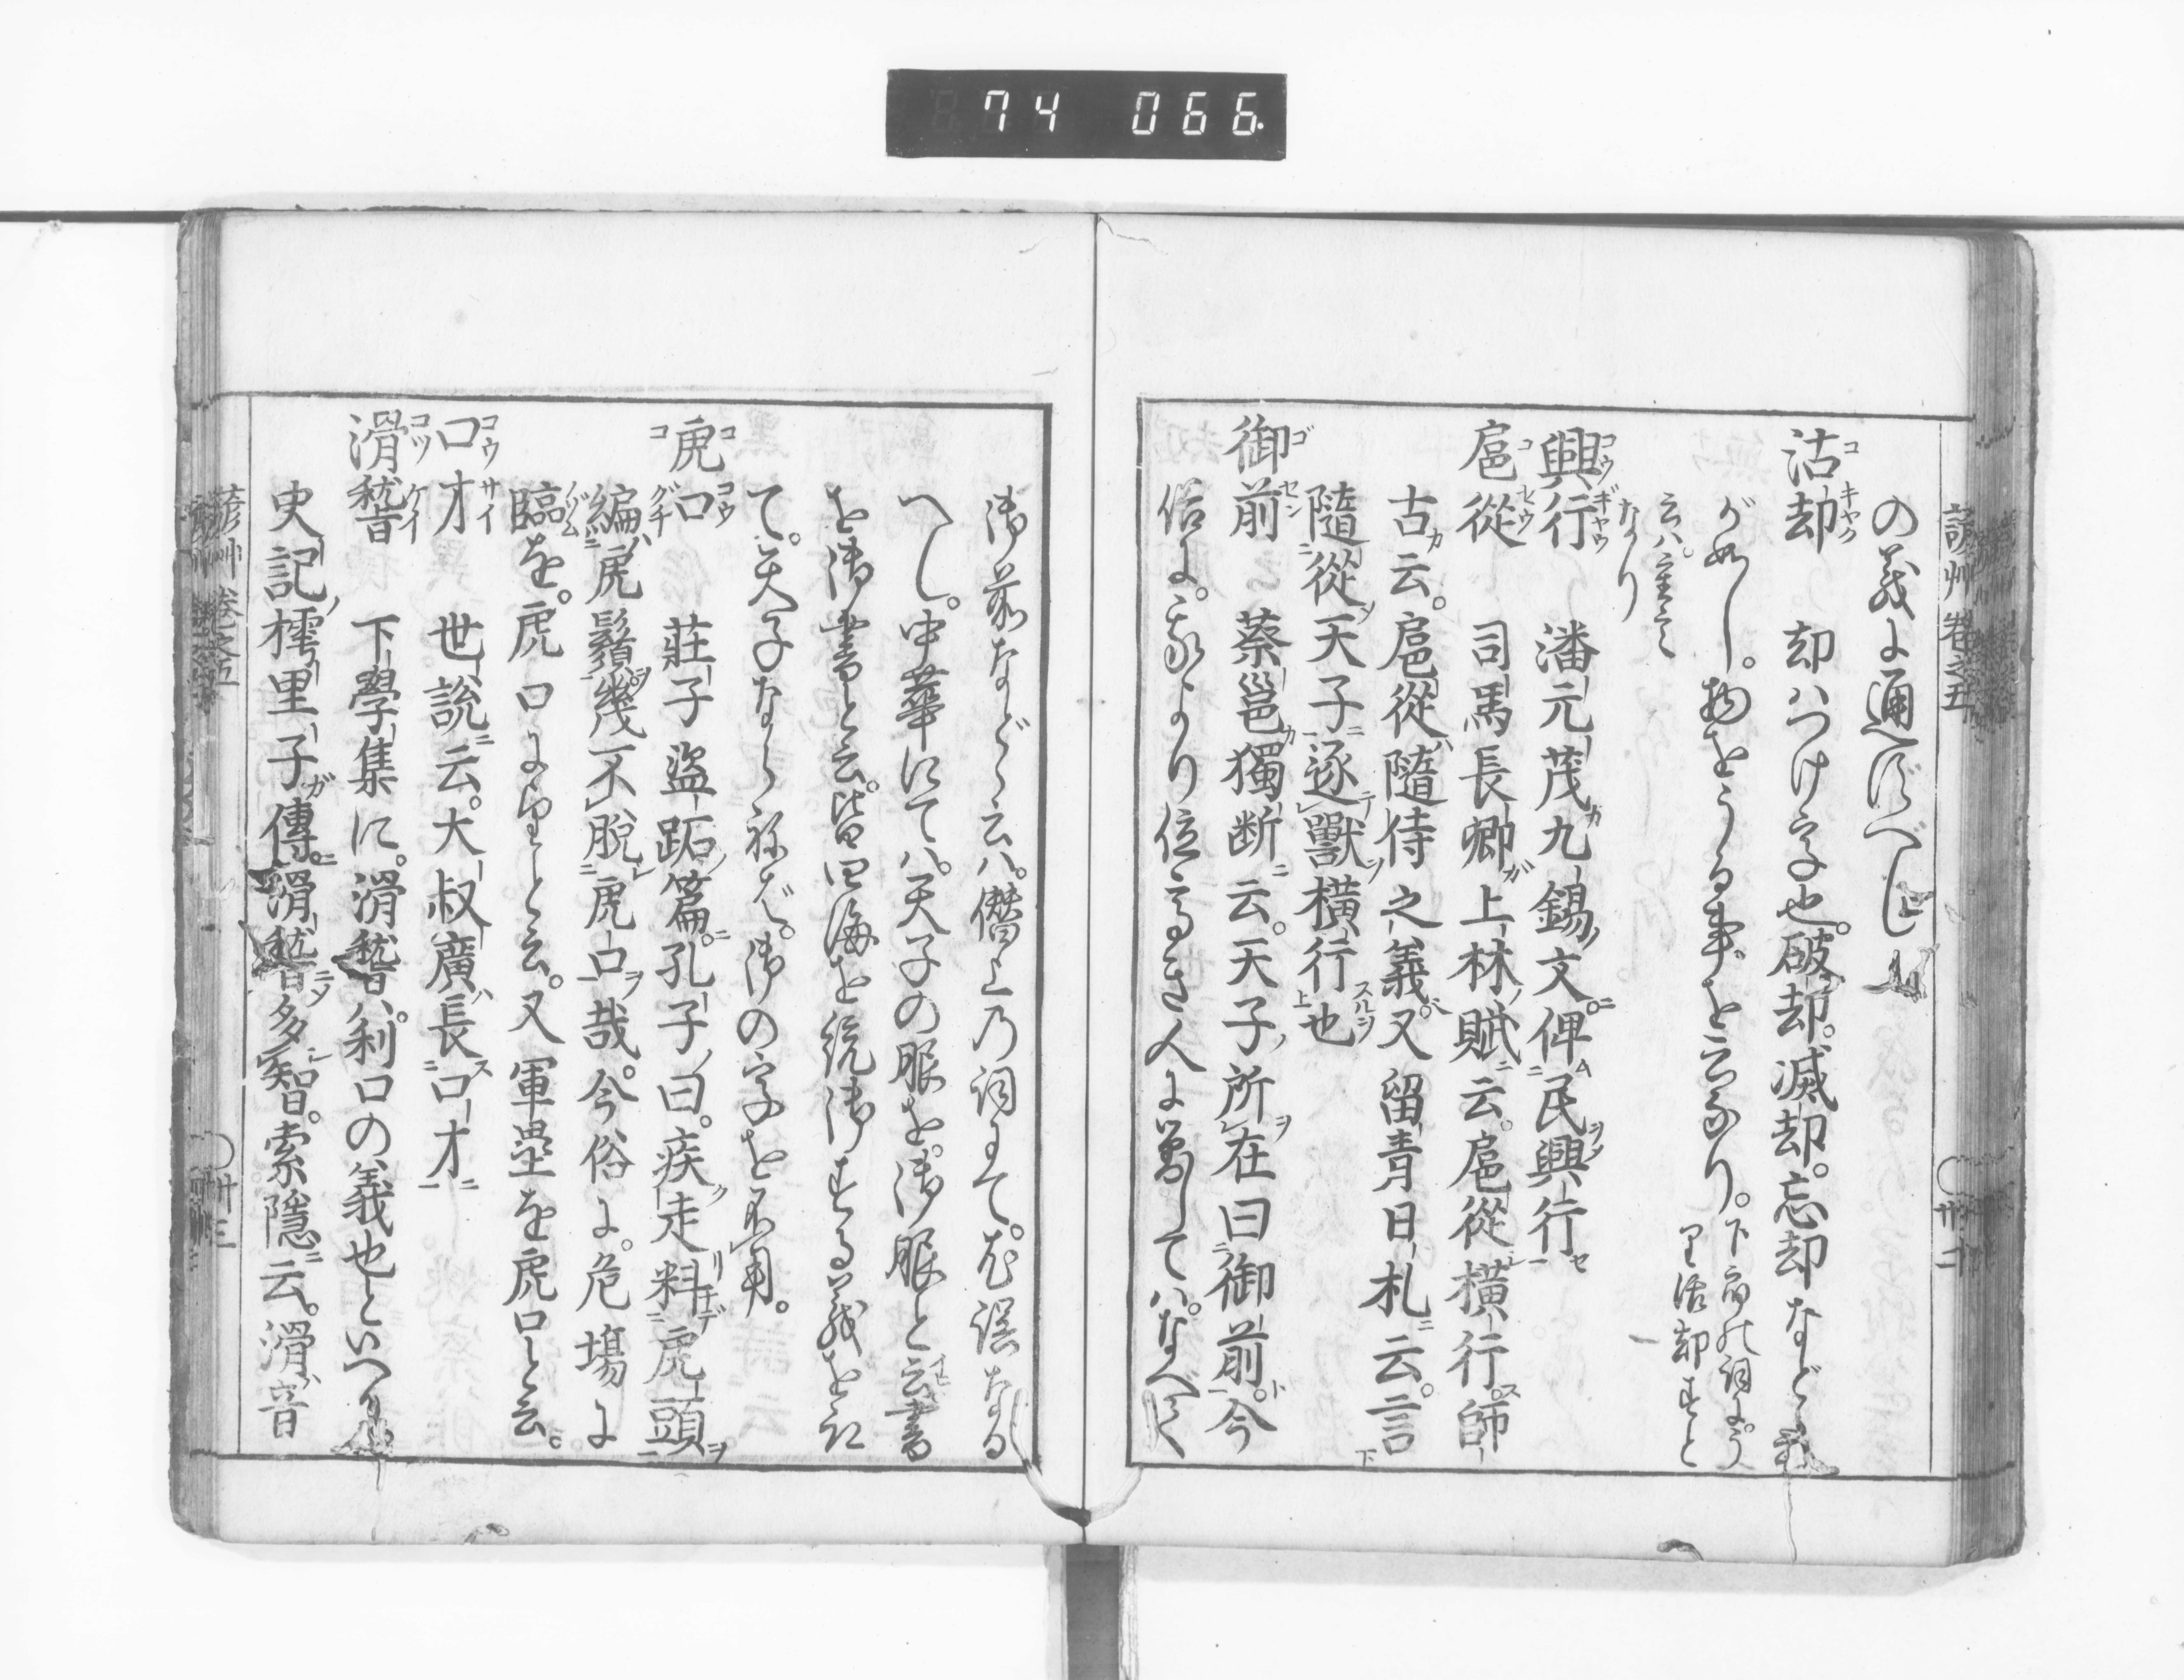 74 066
諺艸 卷之五 〇卅二
の義に通ずべし
沽却 却ハつけ字也。破却。滅却。忘却など
が如し。物をうる事を云なり。
云ハ。重言
なり
興行 潘元茂九錫文俾民興行
扈從 司馬長卿上林賦云。扈從橫行。師
古云。扈從隨侍之義。又留青日札云。言
隨從天子逐獸橫行也
御前 蔡邕獨断云。天子所在曰御前。今
俗に。我より位高き人に對してハ。なべて
御前など云ハ。僭上乃詞にて。尤誤なる
へし。中華にてハ。天子の服を。御服と云書
を御書と云。皆四海を統御する義を
て。天子ならねば。御の字を不用。
虎口 莊子盜跖篇。孔子曰。疾走料虎頭
編虎鬚幾不脱虎口哉。今俗に。危場に
臨を。虎口にのぞむと云。又軍壘を虎口と云。
口才 世說云。大叔廣長口才
滑稽 下學集に。滑稽ハ利口の義也といへり
史記樗里子傳。滑稽多智。索隱云。滑音
諺艸 卷之五 〇卅三